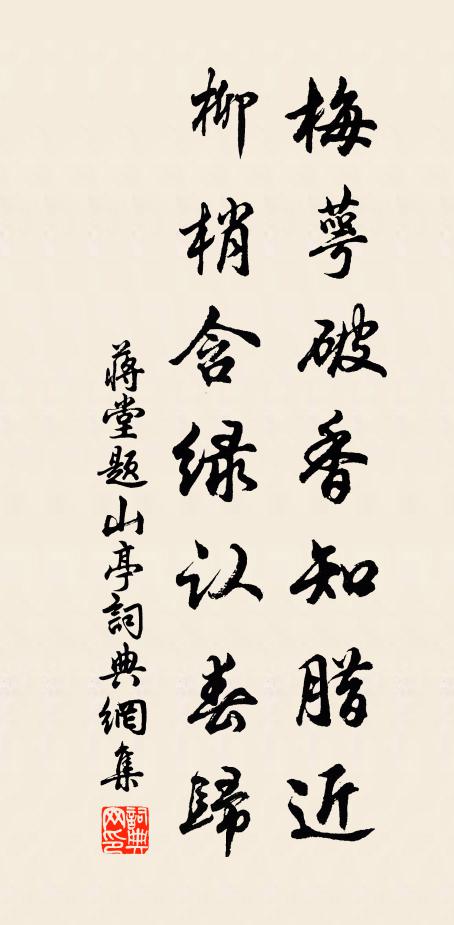 梅萼破香知腊近
柳梢含绿认春歸
蒋堂题山亭詞典網集
詞典网印